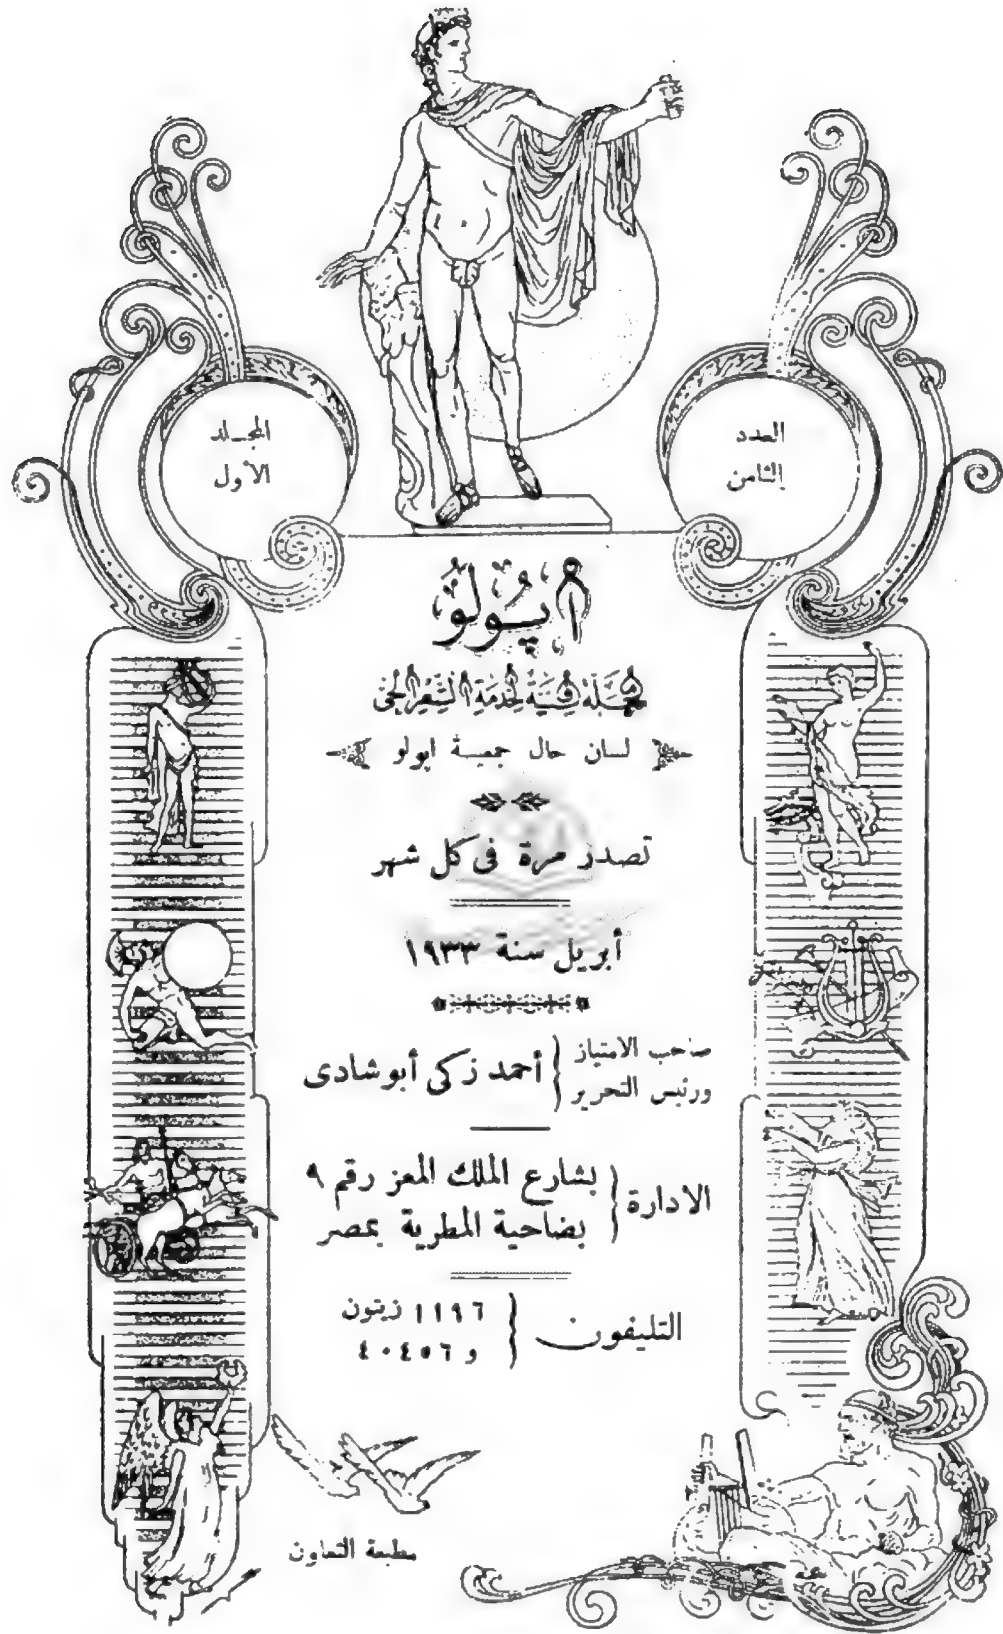 العدد
الثامن
المجلد
الأول
أپولو
مجلة فنية لخدمة الشعر الحي
لسان حال جمعية اپولو
تصدر مرة فى كل شهر
أبريل سنة ١٩٣٣
صاحب الامتياز
ورئيس التحرير
أحمد زكى أبو شادى
الادارة
بشارع الملك المعز رقم ٩
بضاحية المطرية بمصر
التليفون
١١٩٦ زيتون
و ٤٠٤٥٦
مطبعة التعاون